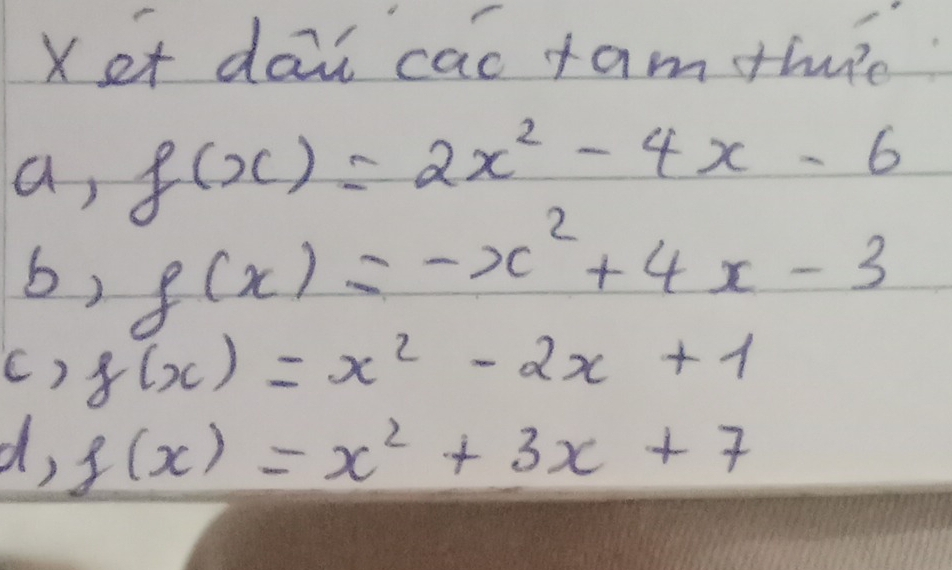 Xét dấu các tam thức:
a, f(x) = 2x² - 4x - 6
b, f(x) = -x² + 4x - 3
c, f(x) = x² - 2x + 1
d, f(x) = x² + 3x + 7